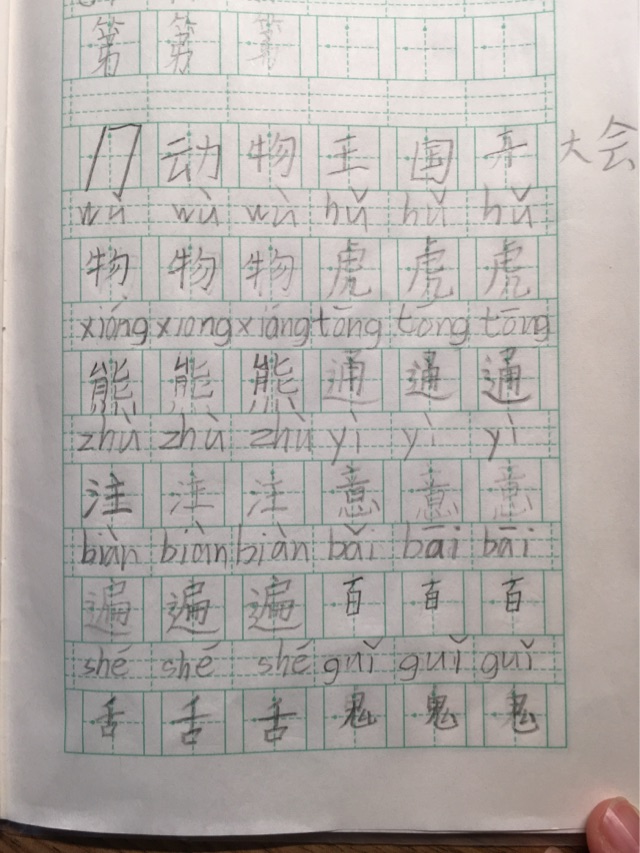 第 第 第
门 动 物 王 国 开 大会
wù wù wù hǔ hǔ hǔ
物 物 物 虎 虎 虎
xióng xiong xióng tōng tōng tōng
熊 熊 熊 通 通 通
zhù zhù zhù yì yì yì
注 注 注 意 意 意
biàn biàn biàn bǎi bāi bāi
遍 遍 遍 百 百 百
shé shé shé guǐ guǐ guǐ
舌 舌 舌 鬼 鬼 鬼